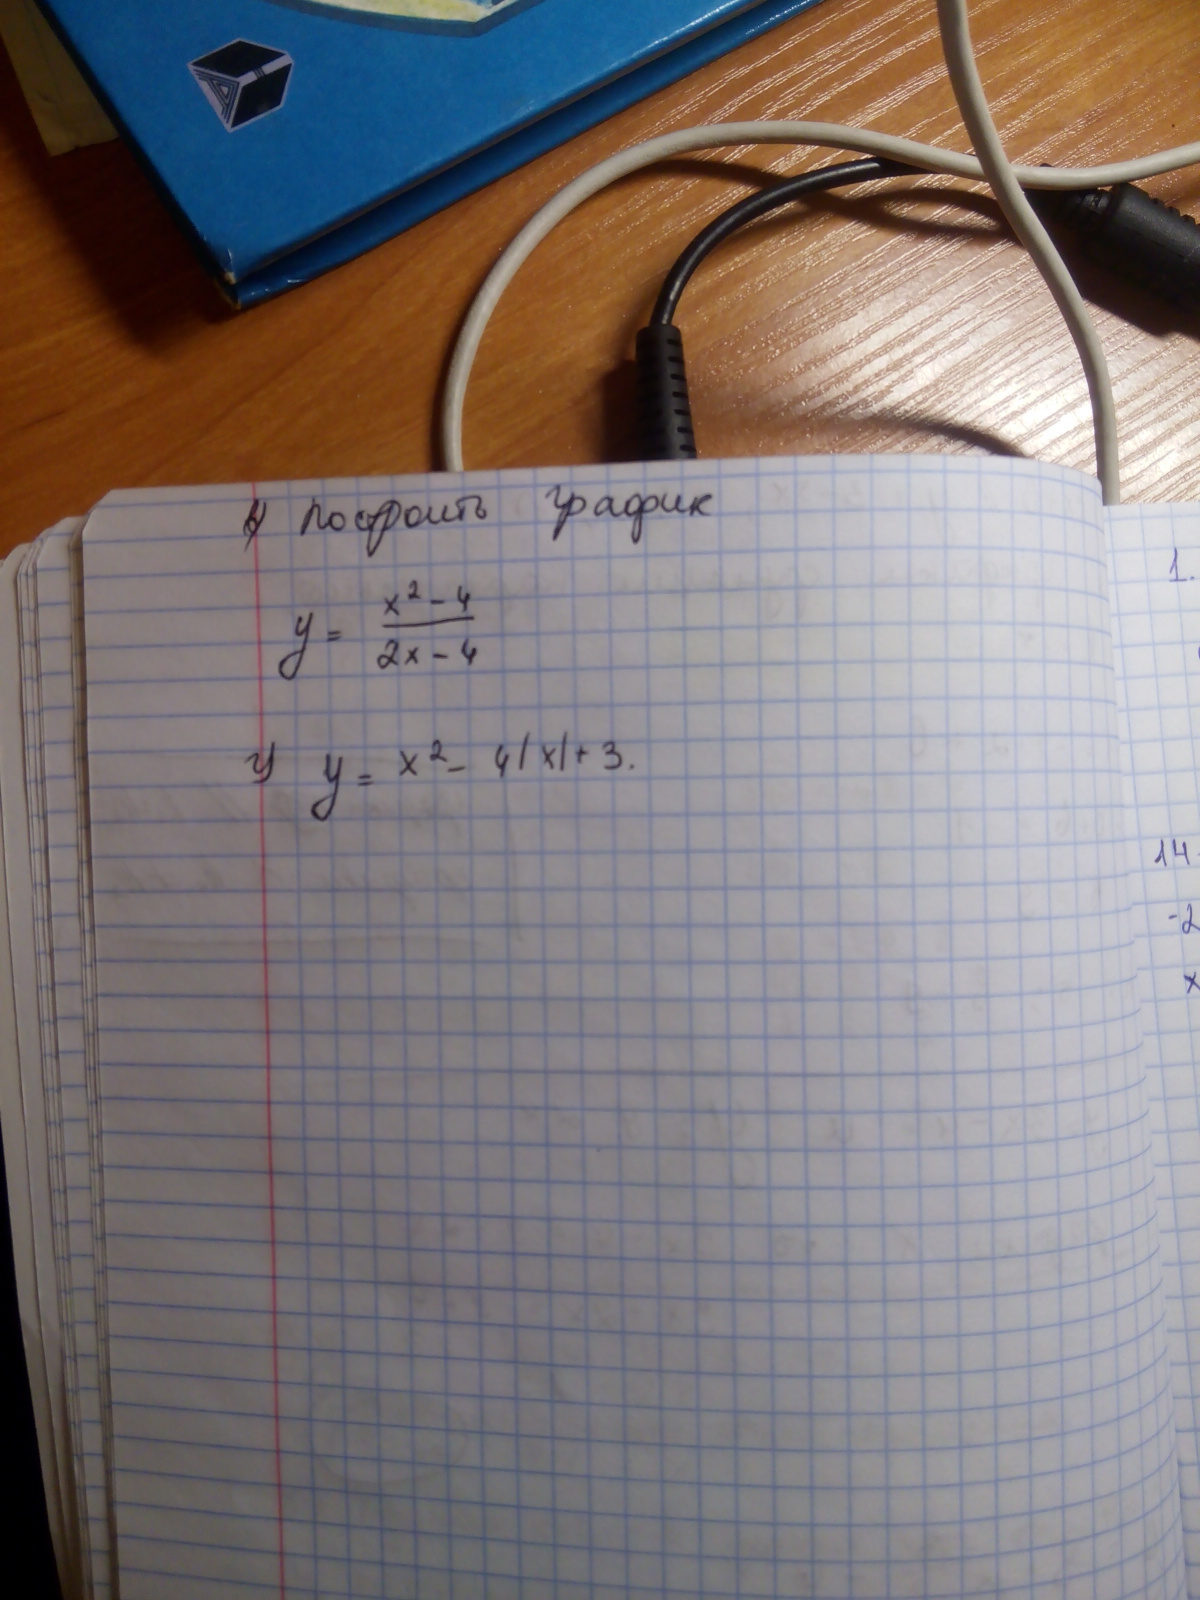 Построить график
y = x² - 4 / 2x - 4
y = x² - 4|x| + 3.
1.
14
-2
x